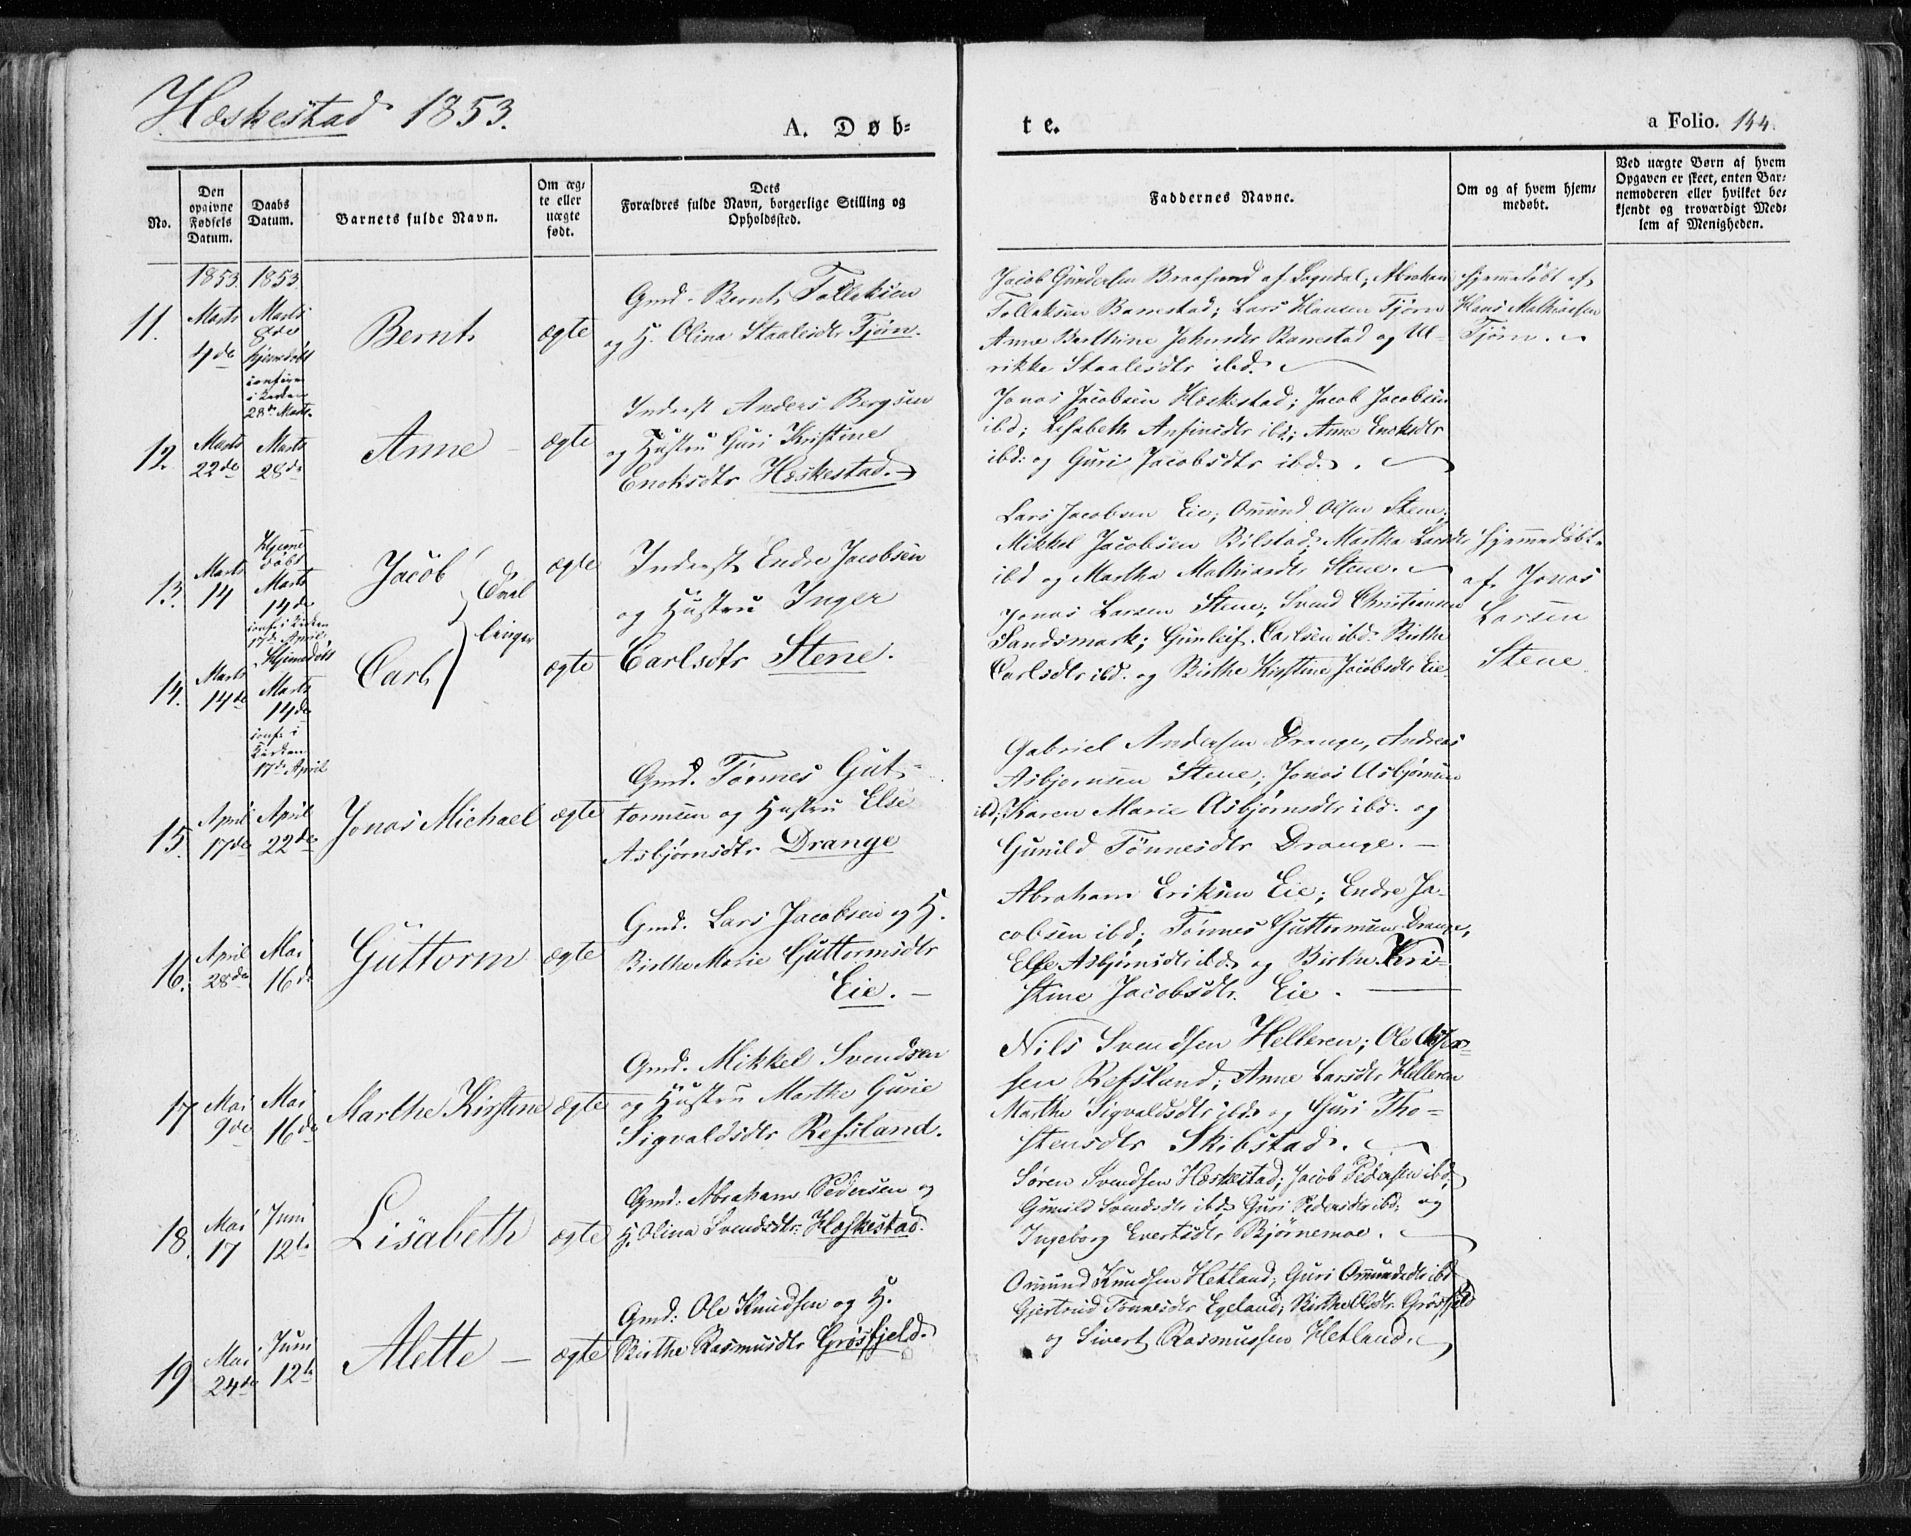 Hæskestad 1853.
A. Døb-
te.
a Folio. 144.
No.
Den
opgivne
Fødsels
Datum.
Daabs
Datum.
Barnets fulde Navn.
Om æg-
te eller
uægte
født.
Dets
Forældres fulde Navn, borgerlige Stilling og
Opholdssted.
Faddernes Navne.
Om og af hvem hjem-
medøbt.
Ved uægte Børn af hvem
Opgaven er skeet, enten Bar-
nemoderen eller hvilket be-
kjendt og troværdigt Med-
lem af Menigheden.
11.
1853
Marts
4de
1853
Marts
8de
hjemedøbt
i Kirken
28de Marts.
Bernt
ægte
Gmd. Bernt Tolleksen
og H. Olina Staalesdtr Tjørn.
Jacob Gundersen af Sogndal; Abraham
Tollaksen Bamstad; Lars Hansen Tjørn
Anne Berthine Johnsdtr Ramstad og Ul-
rikke Staalesdtr ibd.
hjemmedøbt af
Hans Mathiasen
Tjørn.
12.
Marts
22de
Marts
28de
Anne
ægte
Inderst Anders Bergsen
og Hustru Guri Kristine
Enoksdtr Hæskestad.
Jonas Jacobsen Hæskestad; Jacob Jacobsen
ibd; Lisabeth Anfinsdtr ibd; Anne Enoksdtr
ibd: og Guri Jacobsdtr ibd.
13.
Marts
14
Hjeme
døbt
Marts
14de
conf. i Kirken
17de April
Jacob
Tvil
linger
ægte
Inderst Endre Jacobsen
og Hustru Inger
Carlsdtr Stene.
Lars Jacobsen Eie; Omund Olsen Stene;
Mikkel Jacobsen Bilstad; Martha Larsdtr
ibd og Martha Mathiasdtr Stene.
hjemmedøbt
af Jonas
Larsen
Stene
14.
Marts
14de
Hjemedøbt
Marts
14de
conf. i
Kirken
17de April
Carl
ægte
Jonas Larsen Stene; Svend Christiansen
Sandsmark; Gunleif Carlsen ibd. Birthe
Carlsdtr ibd. og Birthe Kirstine Jacobsdtr Eie.
15.
April
17de
April
22de
Jonas Michael
ægte
Gmd. Tønnes Gut-
tormsen og Hustru Else
Asbjørnsdtr Drange
Gabriel Andersen Drange, Andreas
Asbjørnsen Stene; Jonas Asbjørnsen
ibd; Karen Marie Asbjørnsdtr ibd. og
Gunild Tønnesdtr Drange.
16.
April
28de
Mai
16de
Guttorm
ægte
Gmd. Lars Jacobsen og H.
Birthe Marie Guttormsdtr
Eie.
Abraham Eriksen Eie; Endre Ja-
cobsen ibd; Tønnes Guttormsen Drange,
Else Asbjørnsdtr ibd og Birthe Kri-
stine Jacobsdtr. Eie.
17
Mai
9de
Mai
16de
Marthe Kirstine
ægte
Gmd. Mikkel Svendsen
og Hustru Marthe Gurie
Sigvaldsdtr Refsland.
Nils Svendsen Helleren; Ole
sen Refsland; Anne Larsdtr Helleren
Marthe Sigvaldsdtr ibd. og Guri Tho-
stensdtr Skibstad.
18.
Mai
17
Juni
12te
Lisabeth
ægte
Gmd: Abraham Pedersen og
H. Olina Svendsdtr: Hæskestad.
Søren Svendsen Hæskestad; Jacob Pedersen ibd,
Gunild Svendsdtr ibd, Guri Pedersdtr ibd; og
Ingeborg Evertsdtr Bjørnemoe.
19
Mai
24de
Juni
12te
Alette
ægte
Gmd: Ole Knudsen og H.
Birthe Rasmusdtr Grøsfjeld.
Omund Knudsen Hetland; Guri Omundsdtr ibd
Gjertrud Tønnesdtr Egeland; Birthe Olsdtr Grøsfjeld
og Sivert Rasmussen Hetland.